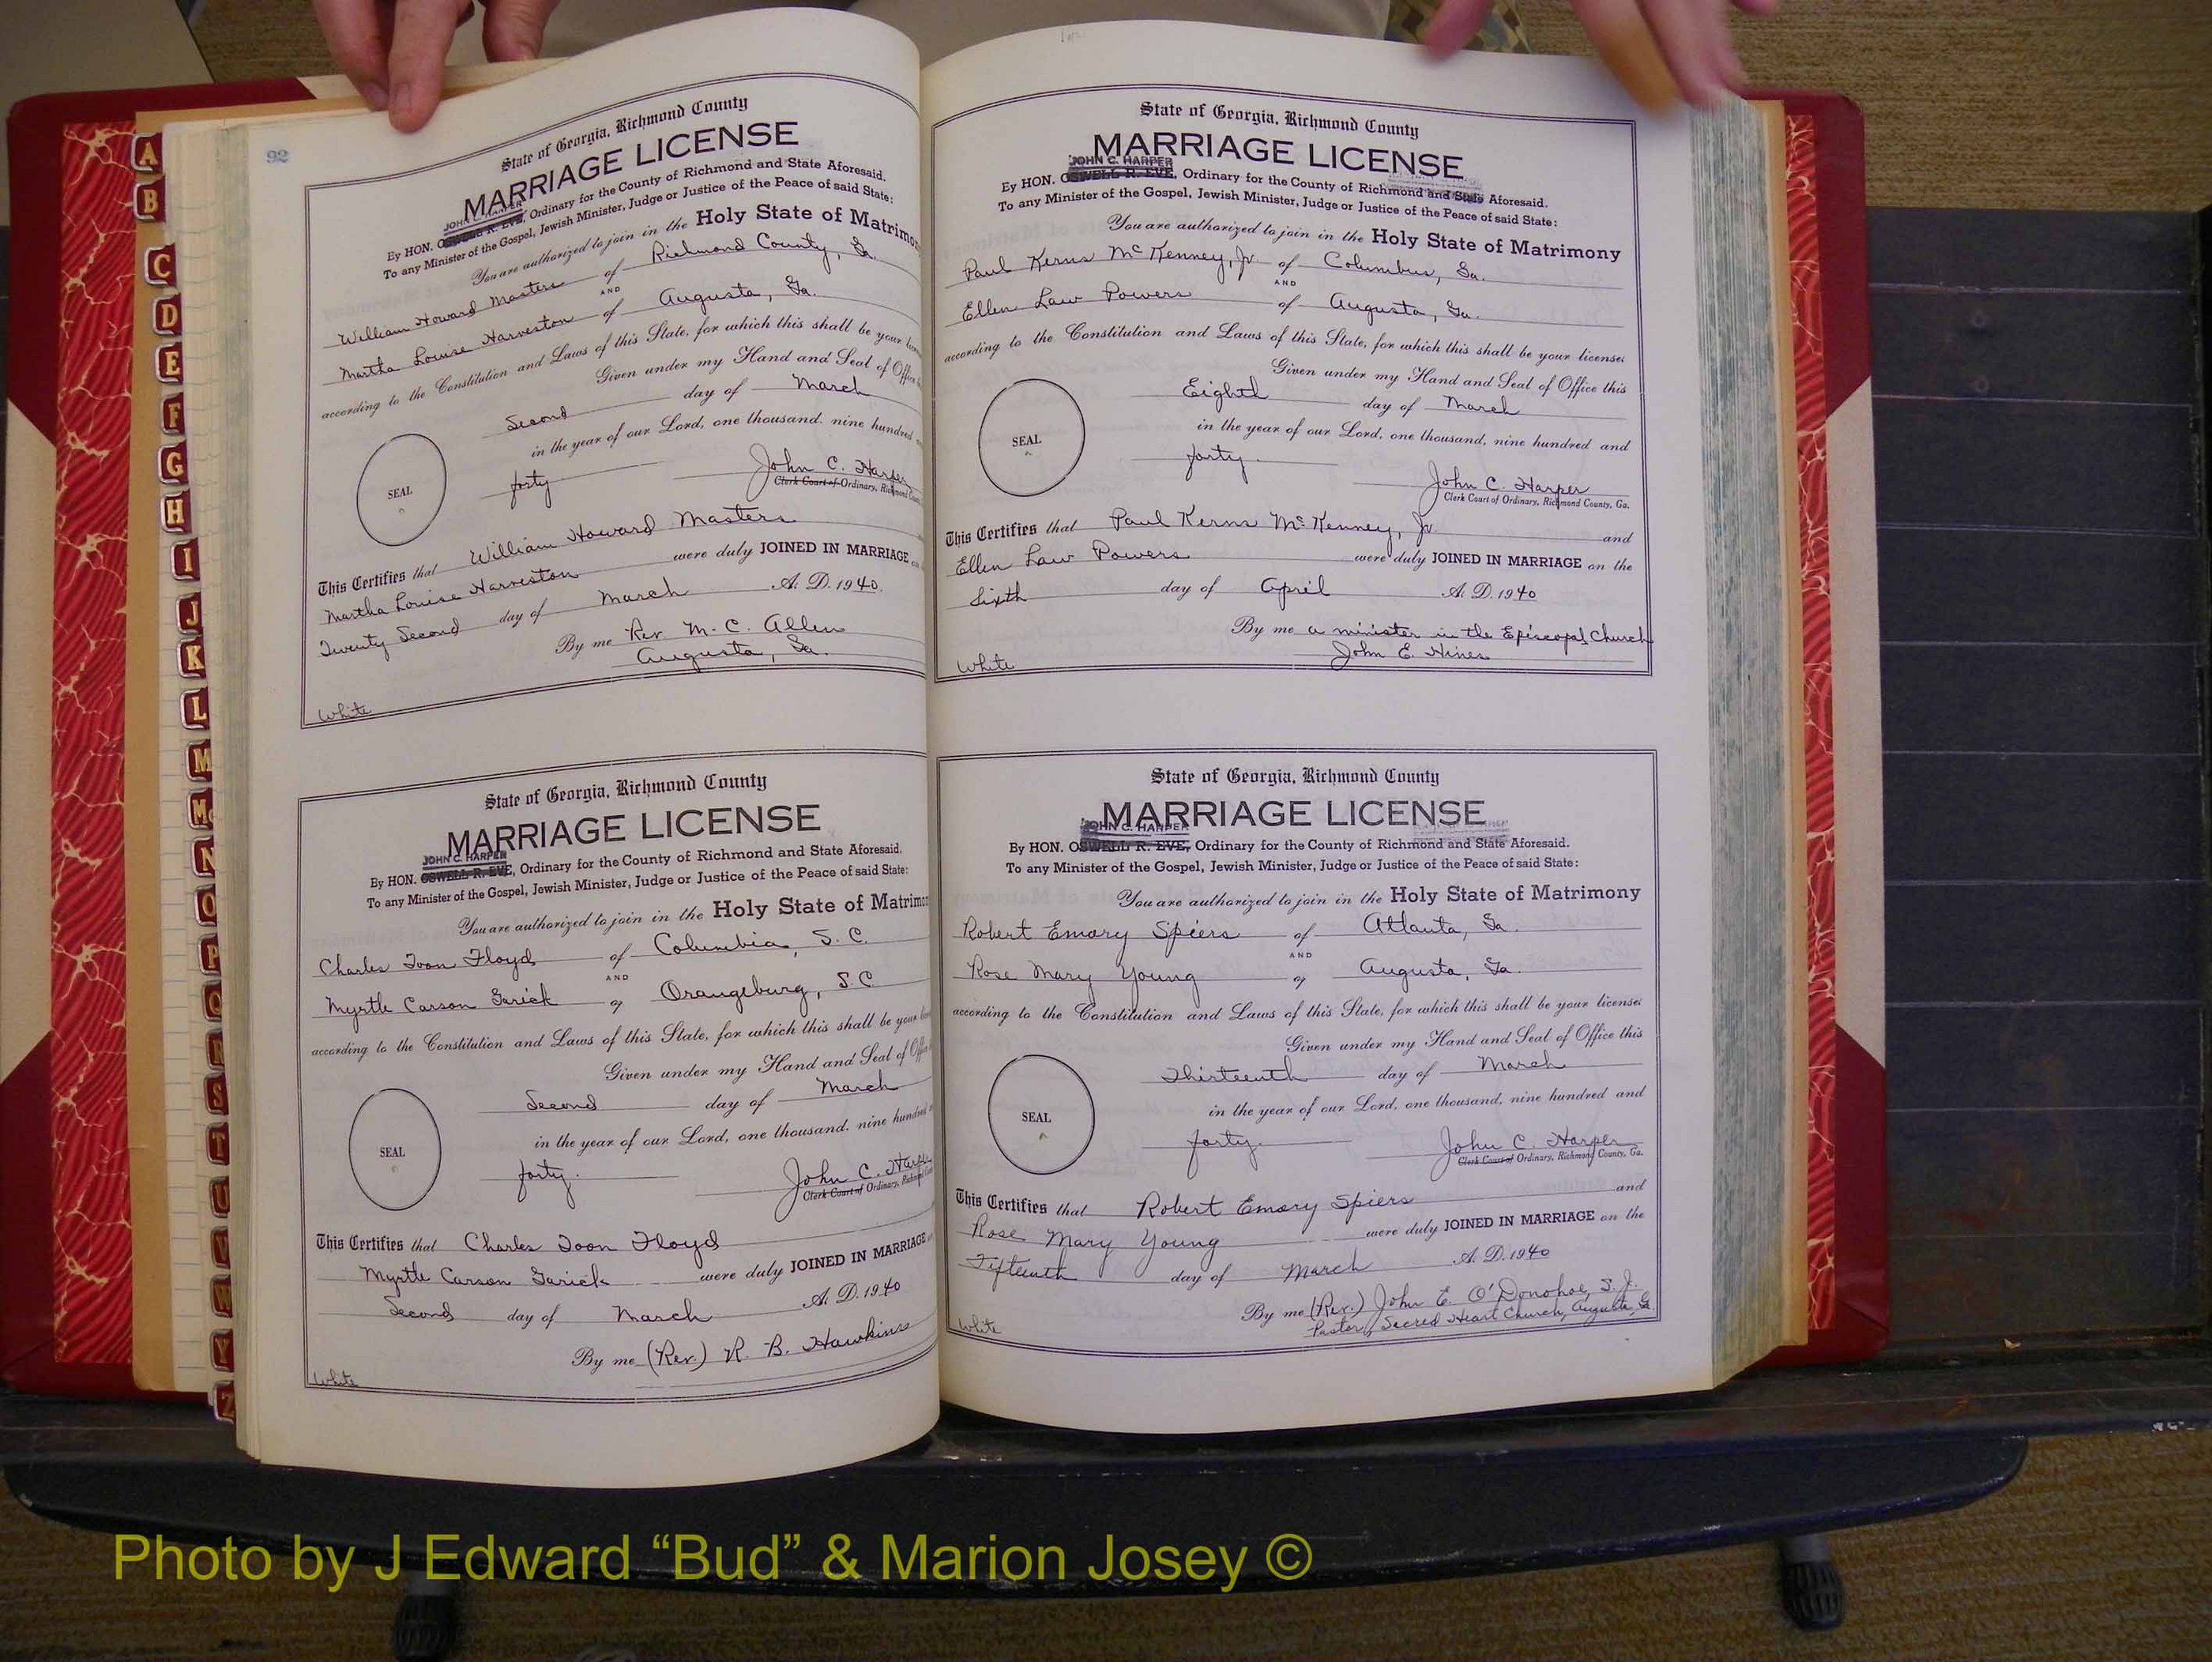 A
B
C
D
E
F
G
H
I
J
K
L
M
Mc
N
O
P
Q
R
S
T
U
V
W
Y
Z
92
State of Georgia, Richmond County
MARRIAGE LICENSE
JOHN C. HARPER
By HON. OSWELL R. EVE, Ordinary for the County of Richmond and State Aforesaid.
To any Minister of the Gospel, Jewish Minister, Judge or Justice of the Peace of said State:
You are authorized to join in the Holy State of Matrimo
William Howard Masters of Richmond County, Ga.
AND
Martha Louise Harveston of Augusta, Ga.
according to the Constitution and Laws of this State, for which this shall be your
Given under my Hand and Seal of Office
Second day of March
in the year of our Lord, one thousand, nine hundred
forty
SEAL
John C. Harper
Clerk Court of Ordinary, Richmond
This Certifies that William Howard Masters
Martha Louise Harveston were duly JOINED IN MARRIAGE
Twenty Second day of March A. D. 1940.
By me Rev M. C. Allen
Augusta, Ga.
White
State of Georgia, Richmond County
MARRIAGE LICENSE
JOHN C. HARPER
By HON. OSWELL R. EVE, Ordinary for the County of Richmond and State Aforesaid.
To any Minister of the Gospel, Jewish Minister, Judge or Justice of the Peace of said State:
You are authorized to join in the Holy State of Matrimo
Charles Toon Floyd of Columbia, S. C.
AND
Myrtle Carson Garick of Orangeburg, S. C
according to the Constitution and Laws of this State, for which this shall be your
Given under my Hand and Seal of Office
Second day of March
in the year of our Lord, one thousand, nine hundred
forty.
SEAL
John C. Harpe
Clerk Court of Ordinary, Richmond
This Certifies that Charles Toon Floyd
Myrtle Carson Garick were duly JOINED IN MARRIAGE
Second day of March A. D. 1940
By me (Rev.) R. B. Hawkins
White
State of Georgia, Richmond County
MARRIAGE LICENSE
JOHN C. HARPER
By HON. OSWELL R. EVE, Ordinary for the County of Richmond and State Aforesaid.
To any Minister of the Gospel, Jewish Minister, Judge or Justice of the Peace of said State:
You are authorized to join in the Holy State of Matrimony
Paul Kerns McKenney, Jr of Columbus, Ga.
AND
Ellen Law Powers of Augusta, Ga.
according to the Constitution and Laws of this State, for which this shall be your license:
Given under my Hand and Seal of Office this
Eighth day of March
in the year of our Lord, one thousand, nine hundred and
forty.
SEAL
John C. Harper
Clerk Court of Ordinary, Richmond County, Ga.
This Certifies that Paul Kerns McKenney, Jr and
Ellen Law Powers were duly JOINED IN MARRIAGE on the
Sixth day of April A. D. 1940
By me a minister in the Episcopal Church
John E. Hines
White
State of Georgia, Richmond County
MARRIAGE LICENSE
JOHN C. HARPER
By HON. OSWELL R. EVE, Ordinary for the County of Richmond and State Aforesaid.
To any Minister of the Gospel, Jewish Minister, Judge or Justice of the Peace of said State:
You are authorized to join in the Holy State of Matrimony
Robert Emory Spiers of Atlanta, Ga.
AND
Rose Mary Young of Augusta, Ga.
according to the Constitution and Laws of this State, for which this shall be your license:
Given under my Hand and Seal of Office this
Thirteenth day of March
in the year of our Lord, one thousand, nine hundred and
forty.
SEAL
John C. Harper
Clerk Court of Ordinary, Richmond County, Ga.
This Certifies that Robert Emory Spiers and
Rose Mary Young were duly JOINED IN MARRIAGE on the
Fifteenth day of March A. D. 1940
By me (Rev.) John E. O'Donohoe, S. J.
Pastor, Sacred Heart Church, Augusta, Ga.
White
Photo by J Edward “Bud” & Marion Josey ©